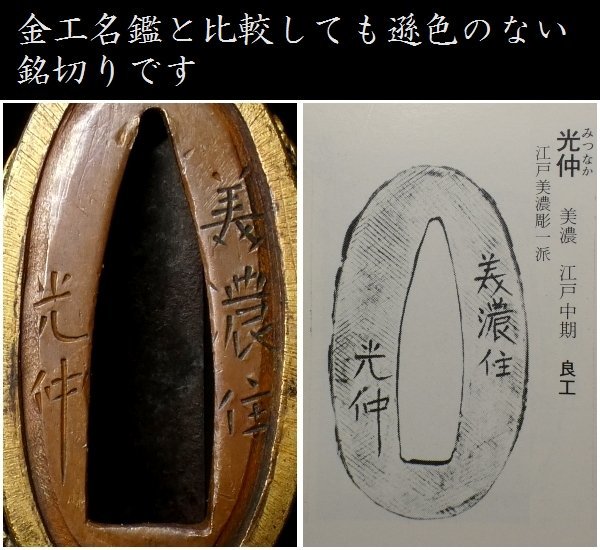 金工名鑑と比較しても遜色のない
銘切りです
義濃住
光仲
みつなか
光仲 美濃 江戸中期 良工
江戸美濃彫一派
義濃住
光仲